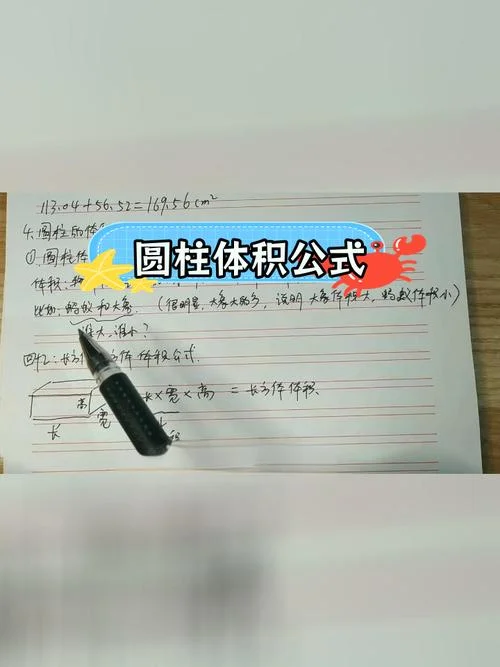 113.04+56.52=169.56cm²
4.圆柱的体
圆柱体积公式
①.圆柱体
体积:
比如:蚂蚁和大象.(很明显,大象大的多,说明 大象体积大,蚂蚁体积小)
谁大,谁小?
回忆:长方 体 体积公式.
高 长×宽×高 = 长方体体积
宽
长 积